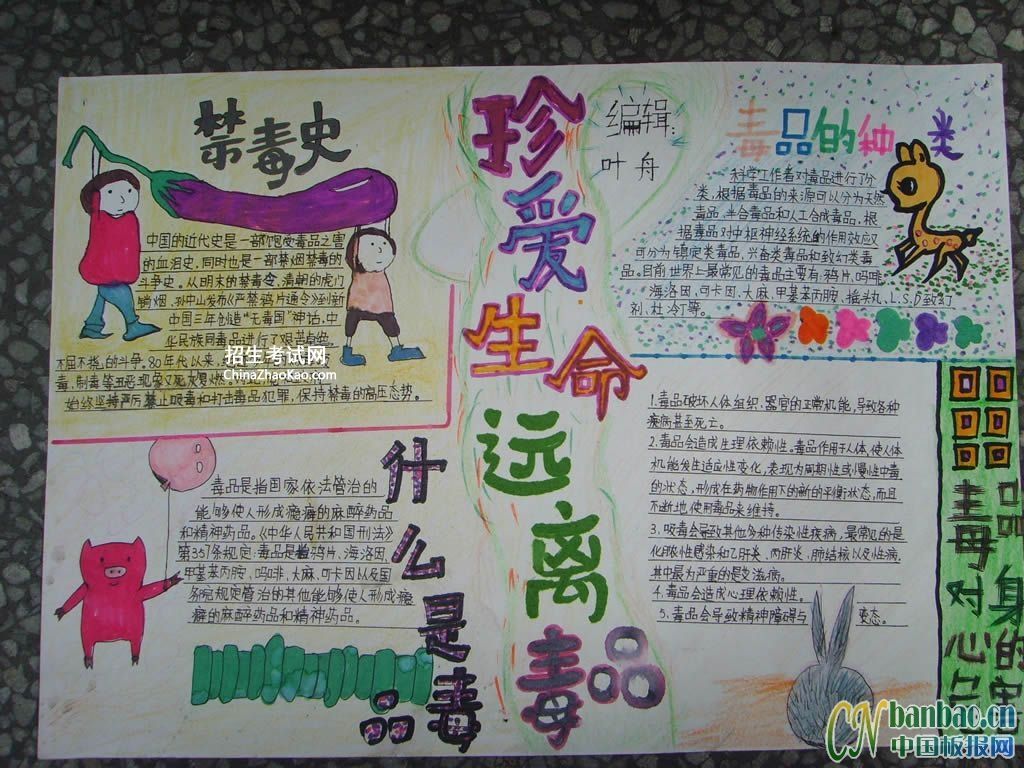 禁毒史
中国的近代史是一部饱受毒品之害
的血泪史,同时也是一部禁烟禁毒的
斗争史。从明末的禁毒令,清朝的虎门
销烟,孙中山发布《严禁鸦片通令》到新
中国三年创造“无毒国”神话,中
华民族同毒品进行了艰苦卓绝
不屈不挠的斗争。80年代以来,
毒,制毒等丑恶现象又死灰复燃。
始终坚持严厉禁止吸毒和打击毒品犯罪,保持禁毒的高压态势。
招生考试网
ChinaZhaoKao.com
珍爱生命远离毒品
编辑:
叶舟
毒品的种类
科学工作者对毒品进行了分
类,根据毒品的来源可以分为天然
毒品,半合毒品和人工合成毒品,根
据毒品对中枢神经系统的作用效应又
可分为镇定类毒品,兴奋类毒品和致幻类毒
品。目前世界上最常见的毒品主要有:鸦片,吗啡,
海洛因,可卡因,大麻,甲基苯丙胺,摇头丸,L.S.D致幻
剂,杜冷丁等。
什么是毒品
毒品是指国家依法管治的
能够使人形成瘾癖的麻醉药品
和精神药品。《中华人民共和国刑法》
第357条规定:毒品是指鸦片、海洛因
甲基苯丙胺,吗啡,大麻,可卡因以及国
务院规定管治的其他能够使人形成瘾
癖的麻醉药品和精神药品。
1.毒品破坏人体组织、器官的正常机能,导致各种
疾病甚至死亡。
2.毒品会造成生理依赖性。毒品作用于人体,使人体
机能发生适应性变化,表现为周期性或慢性中毒
的状态,形成在药物作用下的新的平衡状态,而且
不断地使用毒品来维持。
3.吸毒会导致其他多种传染性疾病,最常见的是
化脓性感染和乙肝炎、丙肝炎,肺结核以及性病,
其中最为严重的是艾滋病。
4.毒品会造成心理依赖性。
5.毒品会导致精神障碍与
变态。
毒品对身心的
CNbanbao.cn
中国板报网